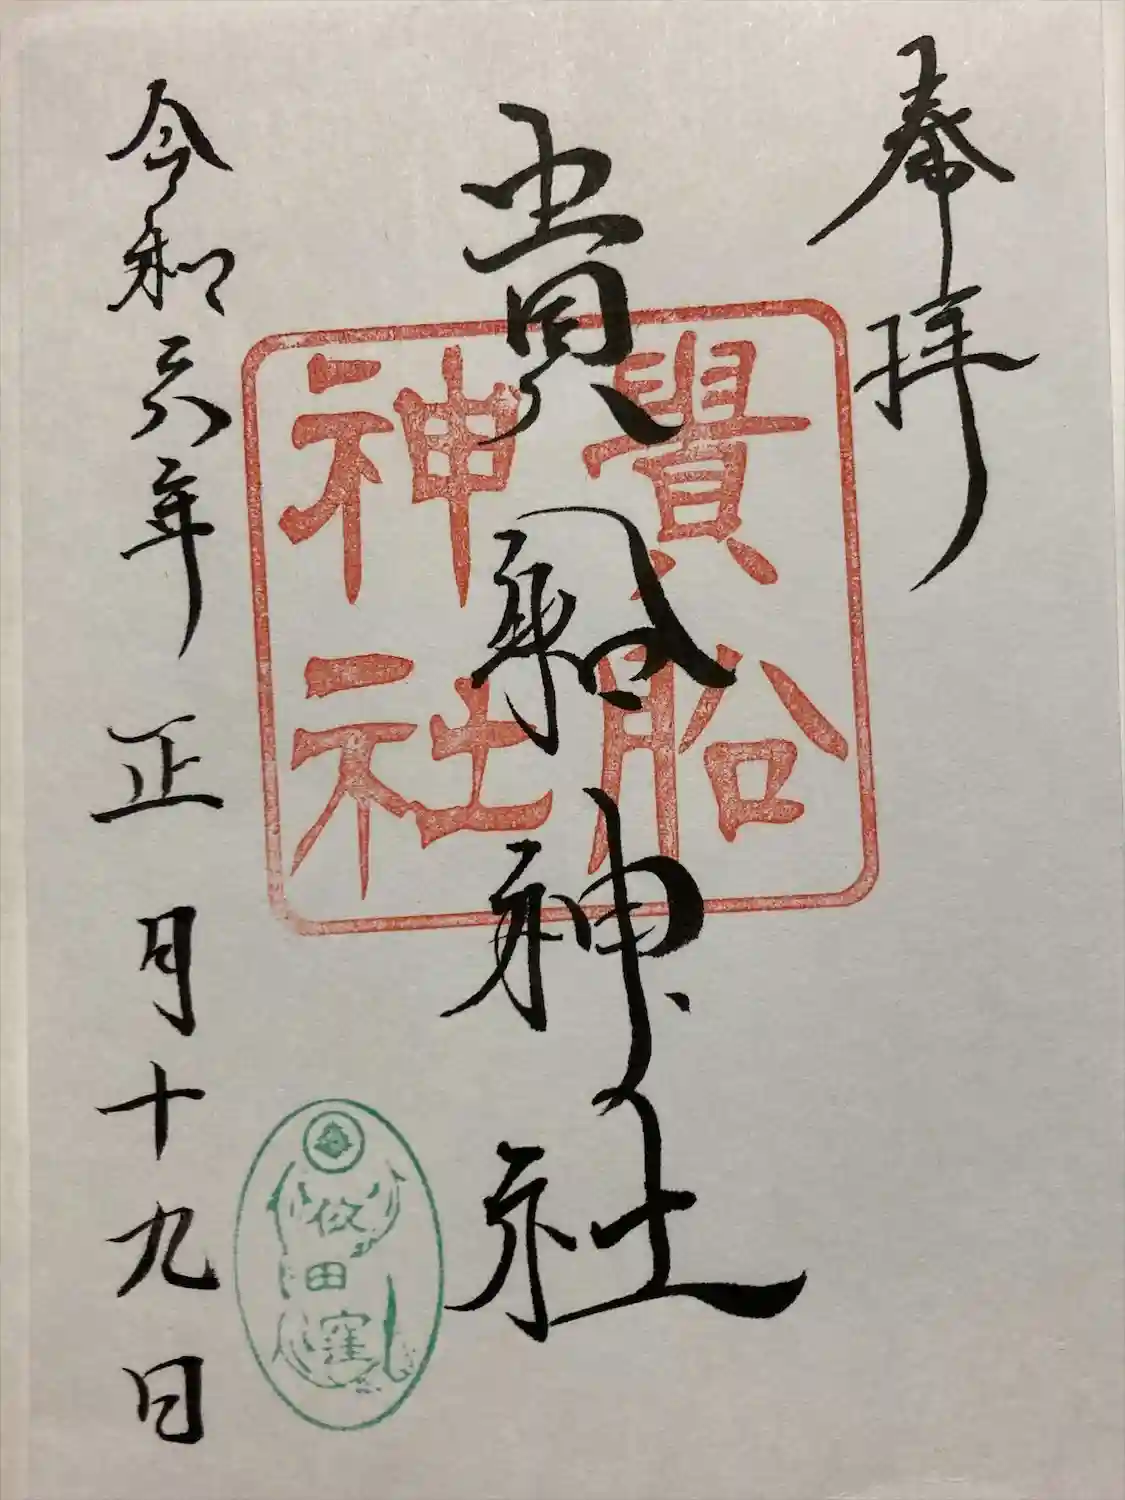 奉拝
貴船神社
貴船
神社
依田窪
令和六年正月十九日